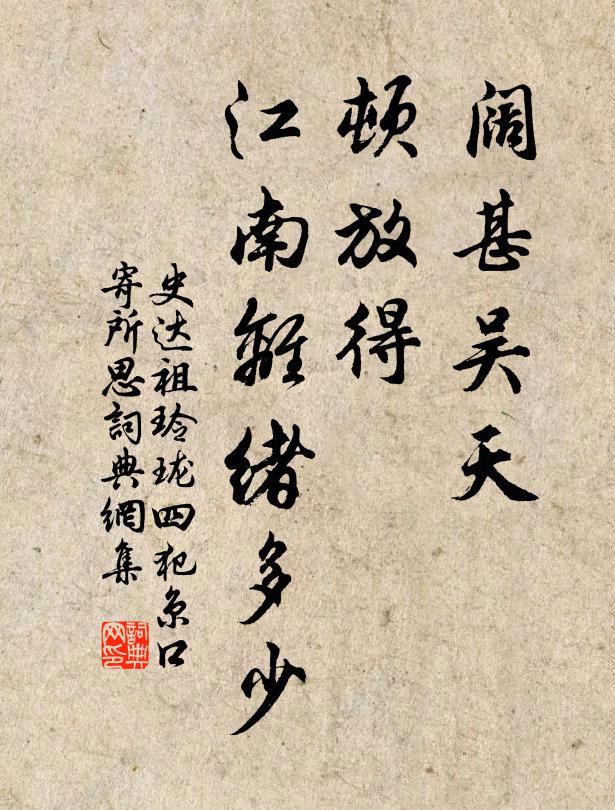 阔甚吴天
顿放得
江南離绪多少
史达祖玲珑四犯京口
寄所思詞典網集
詞典
网印